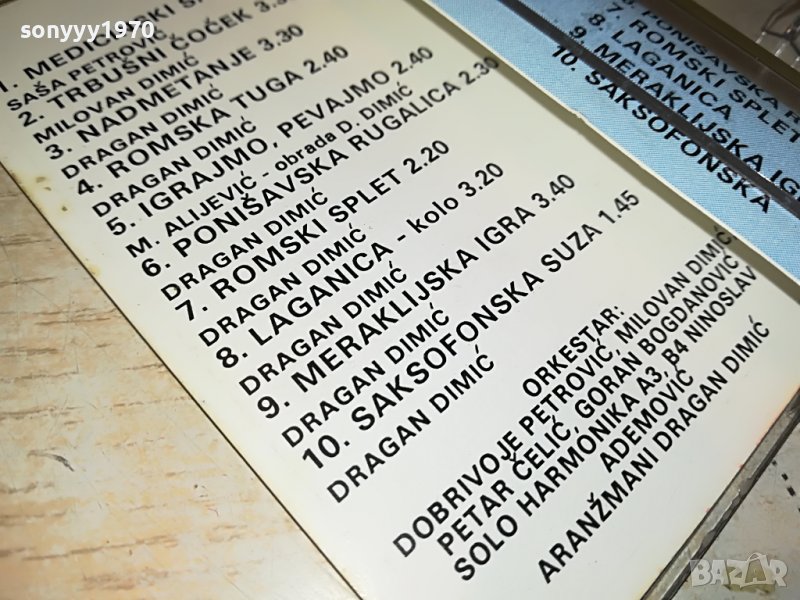 sonyyy1970
1. MEDICINSKI
SAŠA PETROVIĆ
2. TRBUŠNI ČOČEK 3.30
MILOVAN DIMIĆ
3. NADMETANJE 3.30
DRAGAN DIMIĆ
4. ROMSKA TUGA 2.40
DRAGAN DIMIĆ
5. IGRAJMO, PEVAJMO 2.40
M. ALIJEVIĆ - obrada D. DIMIĆ
6. PONIŠAVSKA RUGALICA 2.30
DRAGAN DIMIĆ
7. ROMSKI SPLET 2.20
DRAGAN DIMIĆ
8. LAGANICA - kolo 3.20
DRAGAN DIMIĆ
9. MERAKLIJSKA IGRA 3.40
DRAGAN DIMIĆ
10. SAKSOFONSKA SUZA 1.45
DRAGAN DIMIĆ
ORKESTAR:
DOBRIVOJE PETROVIĆ, MILOVAN DIMIĆ
PETAR ČELIĆ, GORAN BOGDANOVIĆ
SOLO HARMONIKA A3, B4 NINOSLAV
ADEMOVIĆ
ARANŽMANI DRAGAN DIMIĆ
PONIŠAVSKA
7. ROMSKI SPLET
8. LAGANICA
9. MERAKLIJSKA
10. SAKSOFONSKA
BAZAR